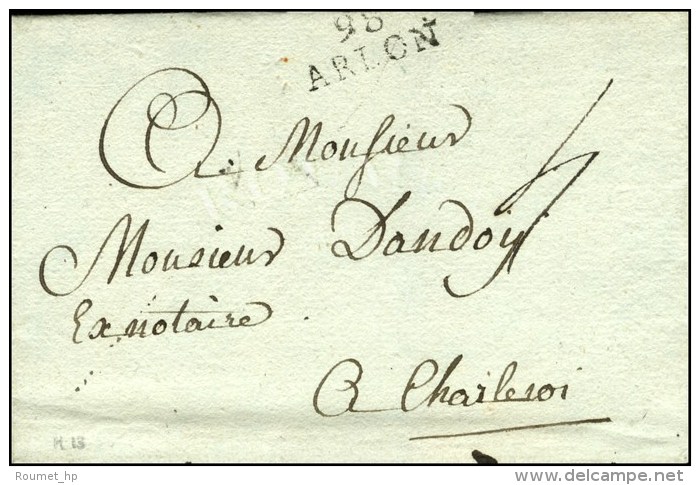 98
ARLON
A Monsieur
Monsieur Dandoÿ
Ex notaire
A Charleroi
H 13
Roumet_hp
http://www.delcampe.net